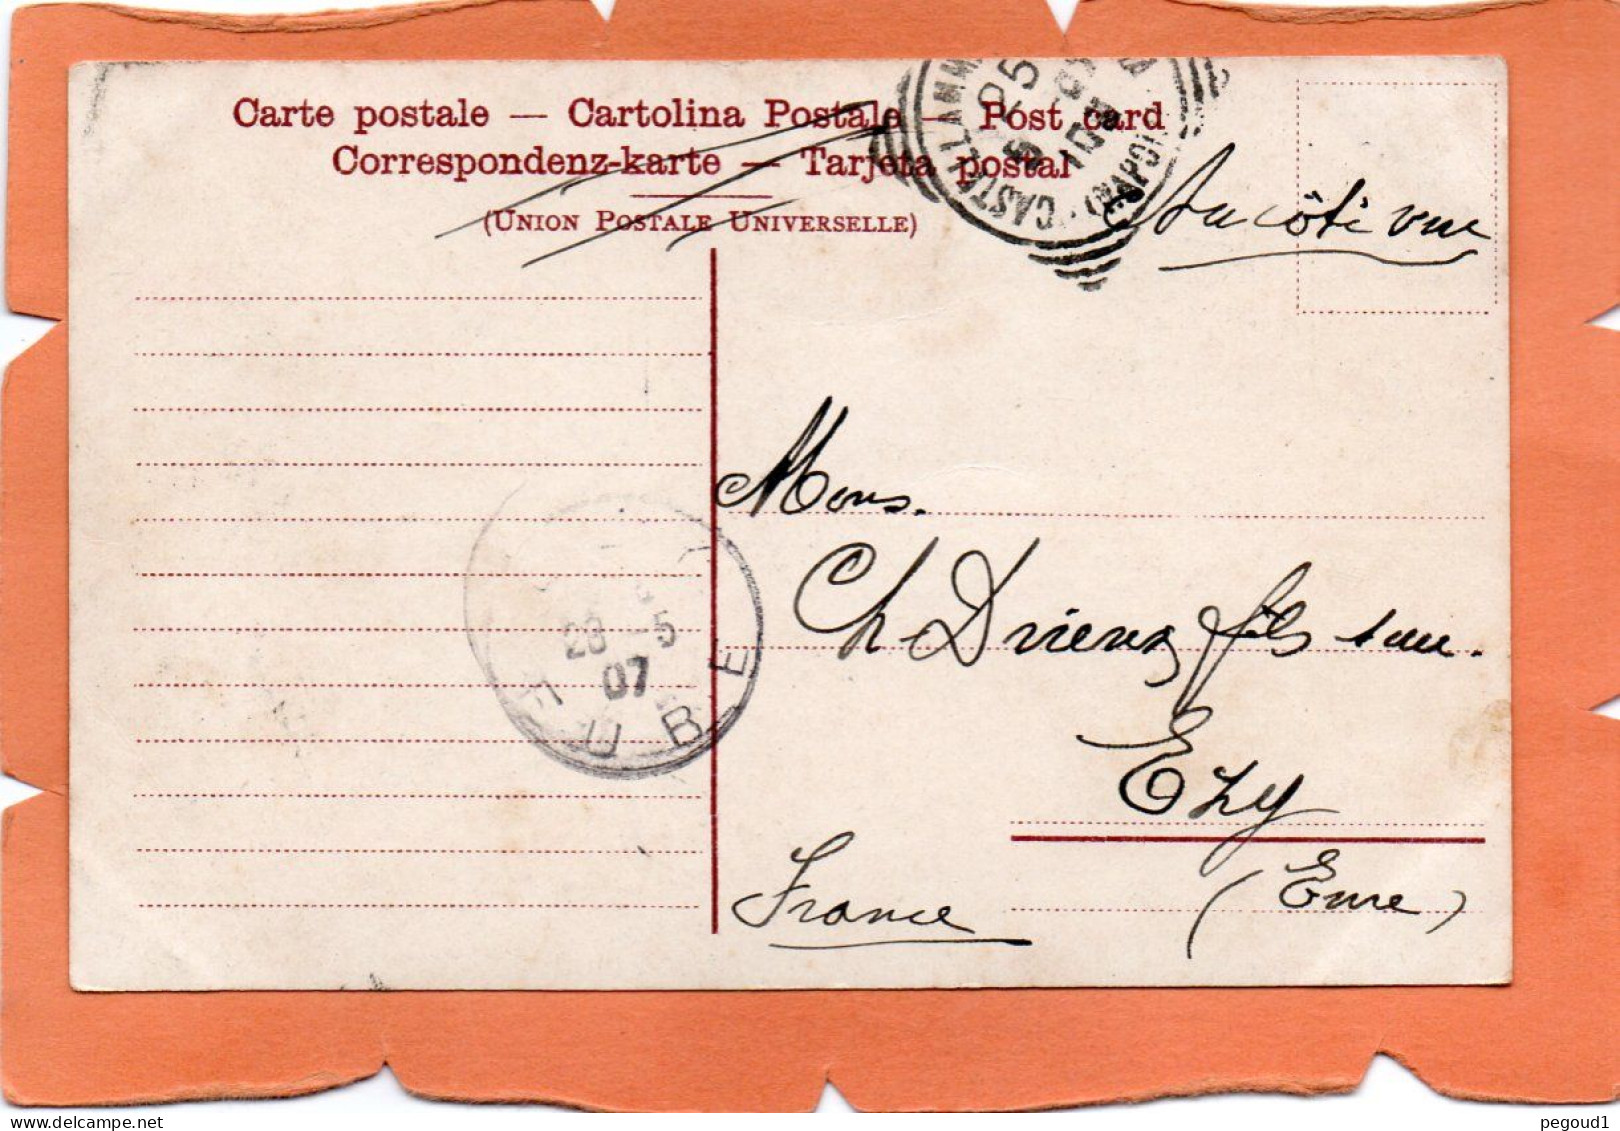 Carte postale — Cartolina Postale — Post card
Correspondenz-karte — Tarjeta postal
(UNION POSTALE UNIVERSELLE)
CASTELLAMM
(NAPOLI)
25
côté vue
Mons.
Ch Drieux fils
Ezy
(Eure)
France
28 -5
07
EUBE
pegoud1